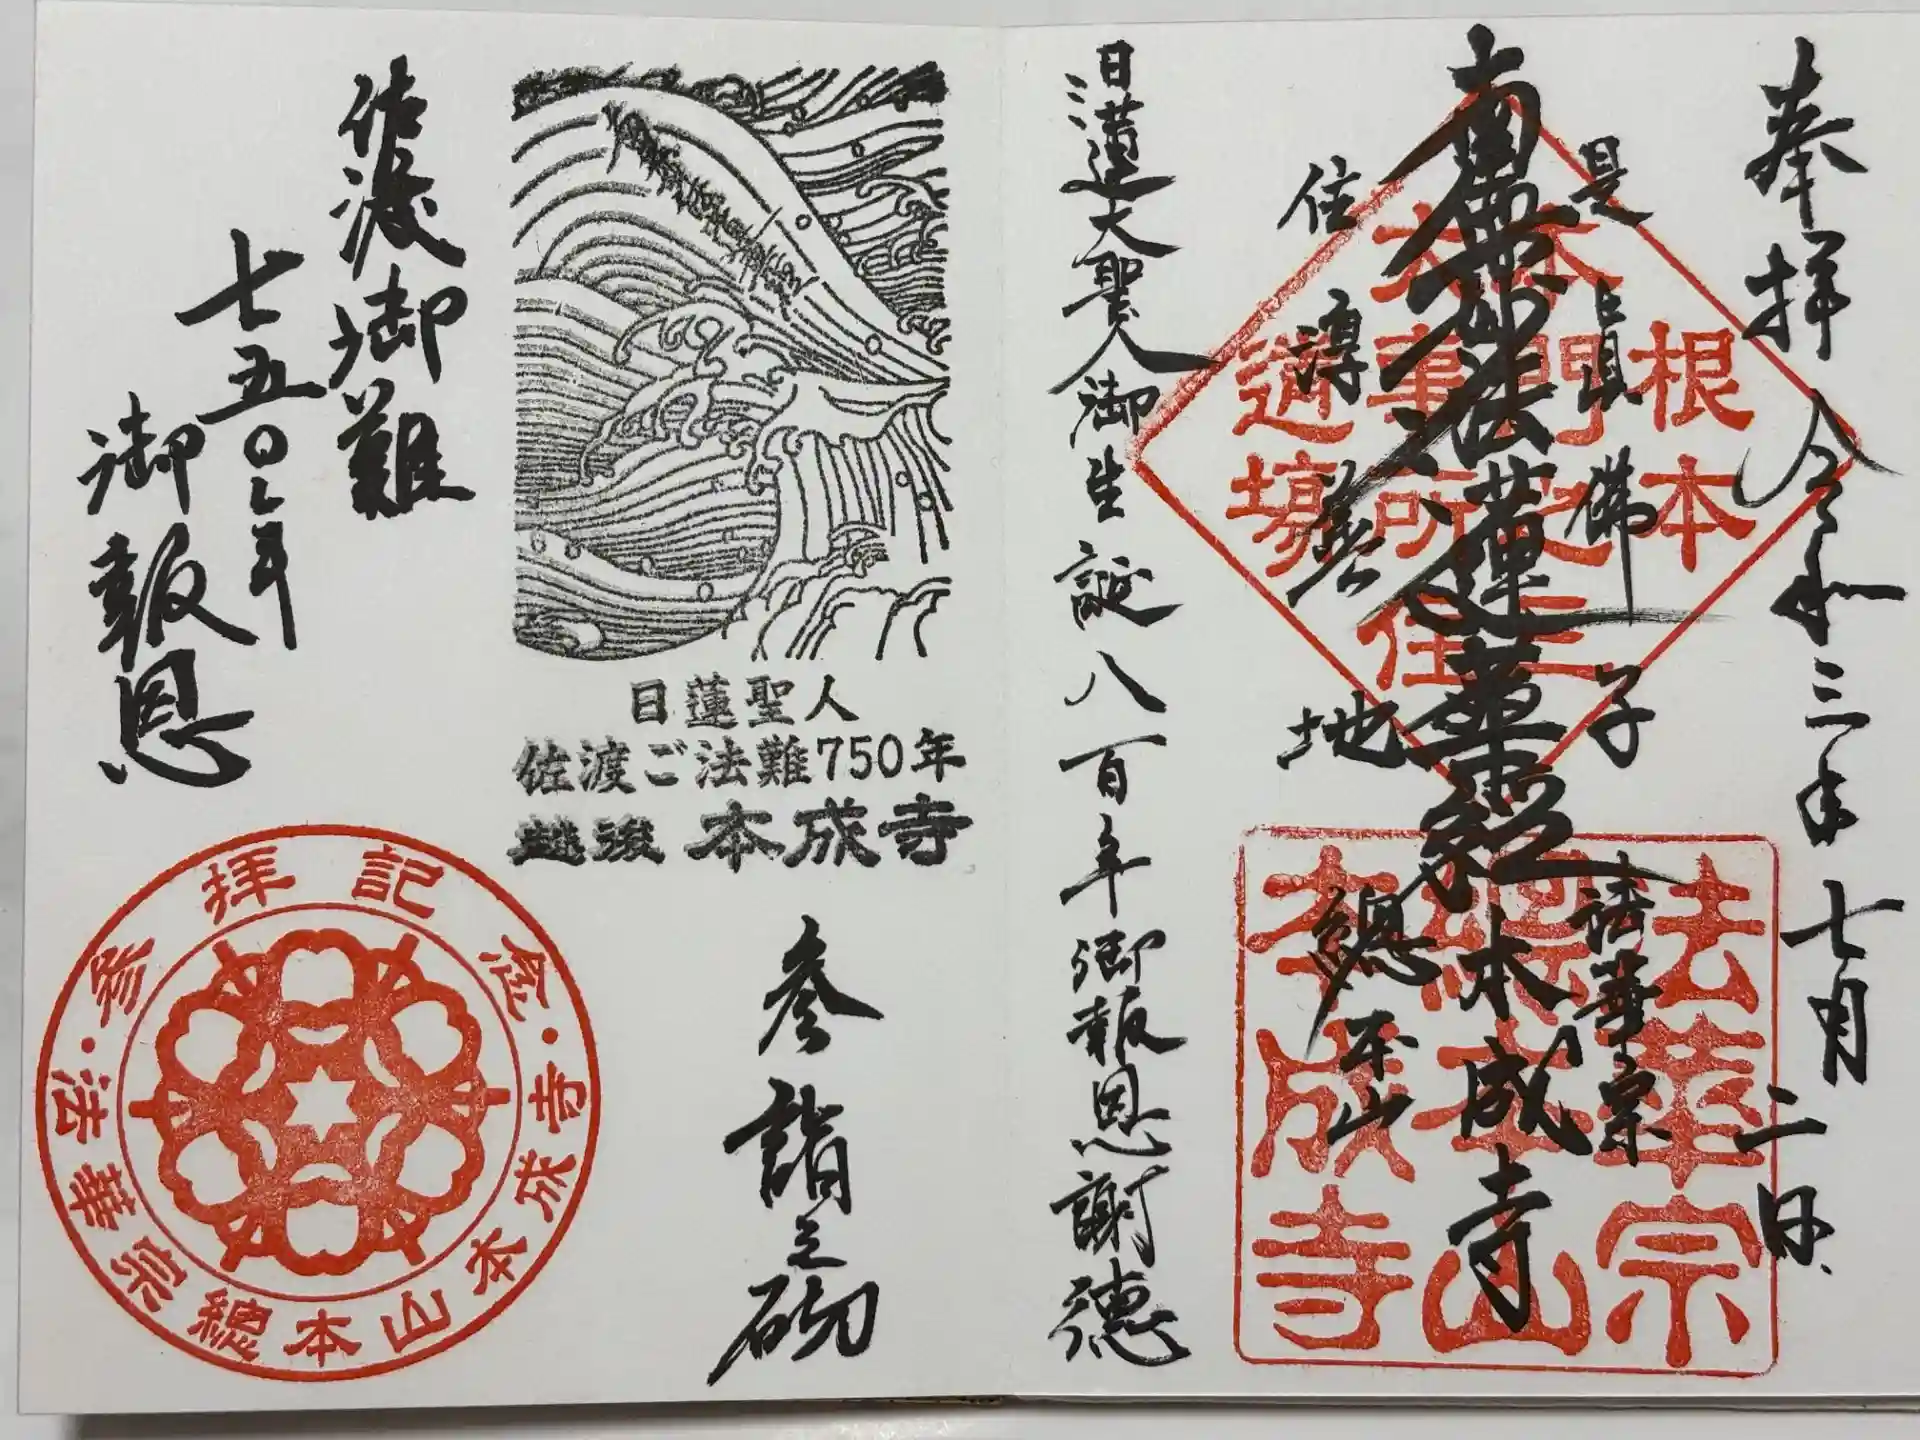 奉拝 令和三年七月二日
是真佛子
南無妙法蓮華経
住淳善地
法華宗
本成寺
總本山
根本
本門三
大事所住
道場
法華宗
總本山
本成寺
日蓮大聖人御生誕八百年御報恩謝徳
日蓮聖人
佐渡ご法難750年
越後 本成寺
参詣之砌
佐渡御難
七五〇年
御報恩
参拝記念・法華宗總本山本成寺・